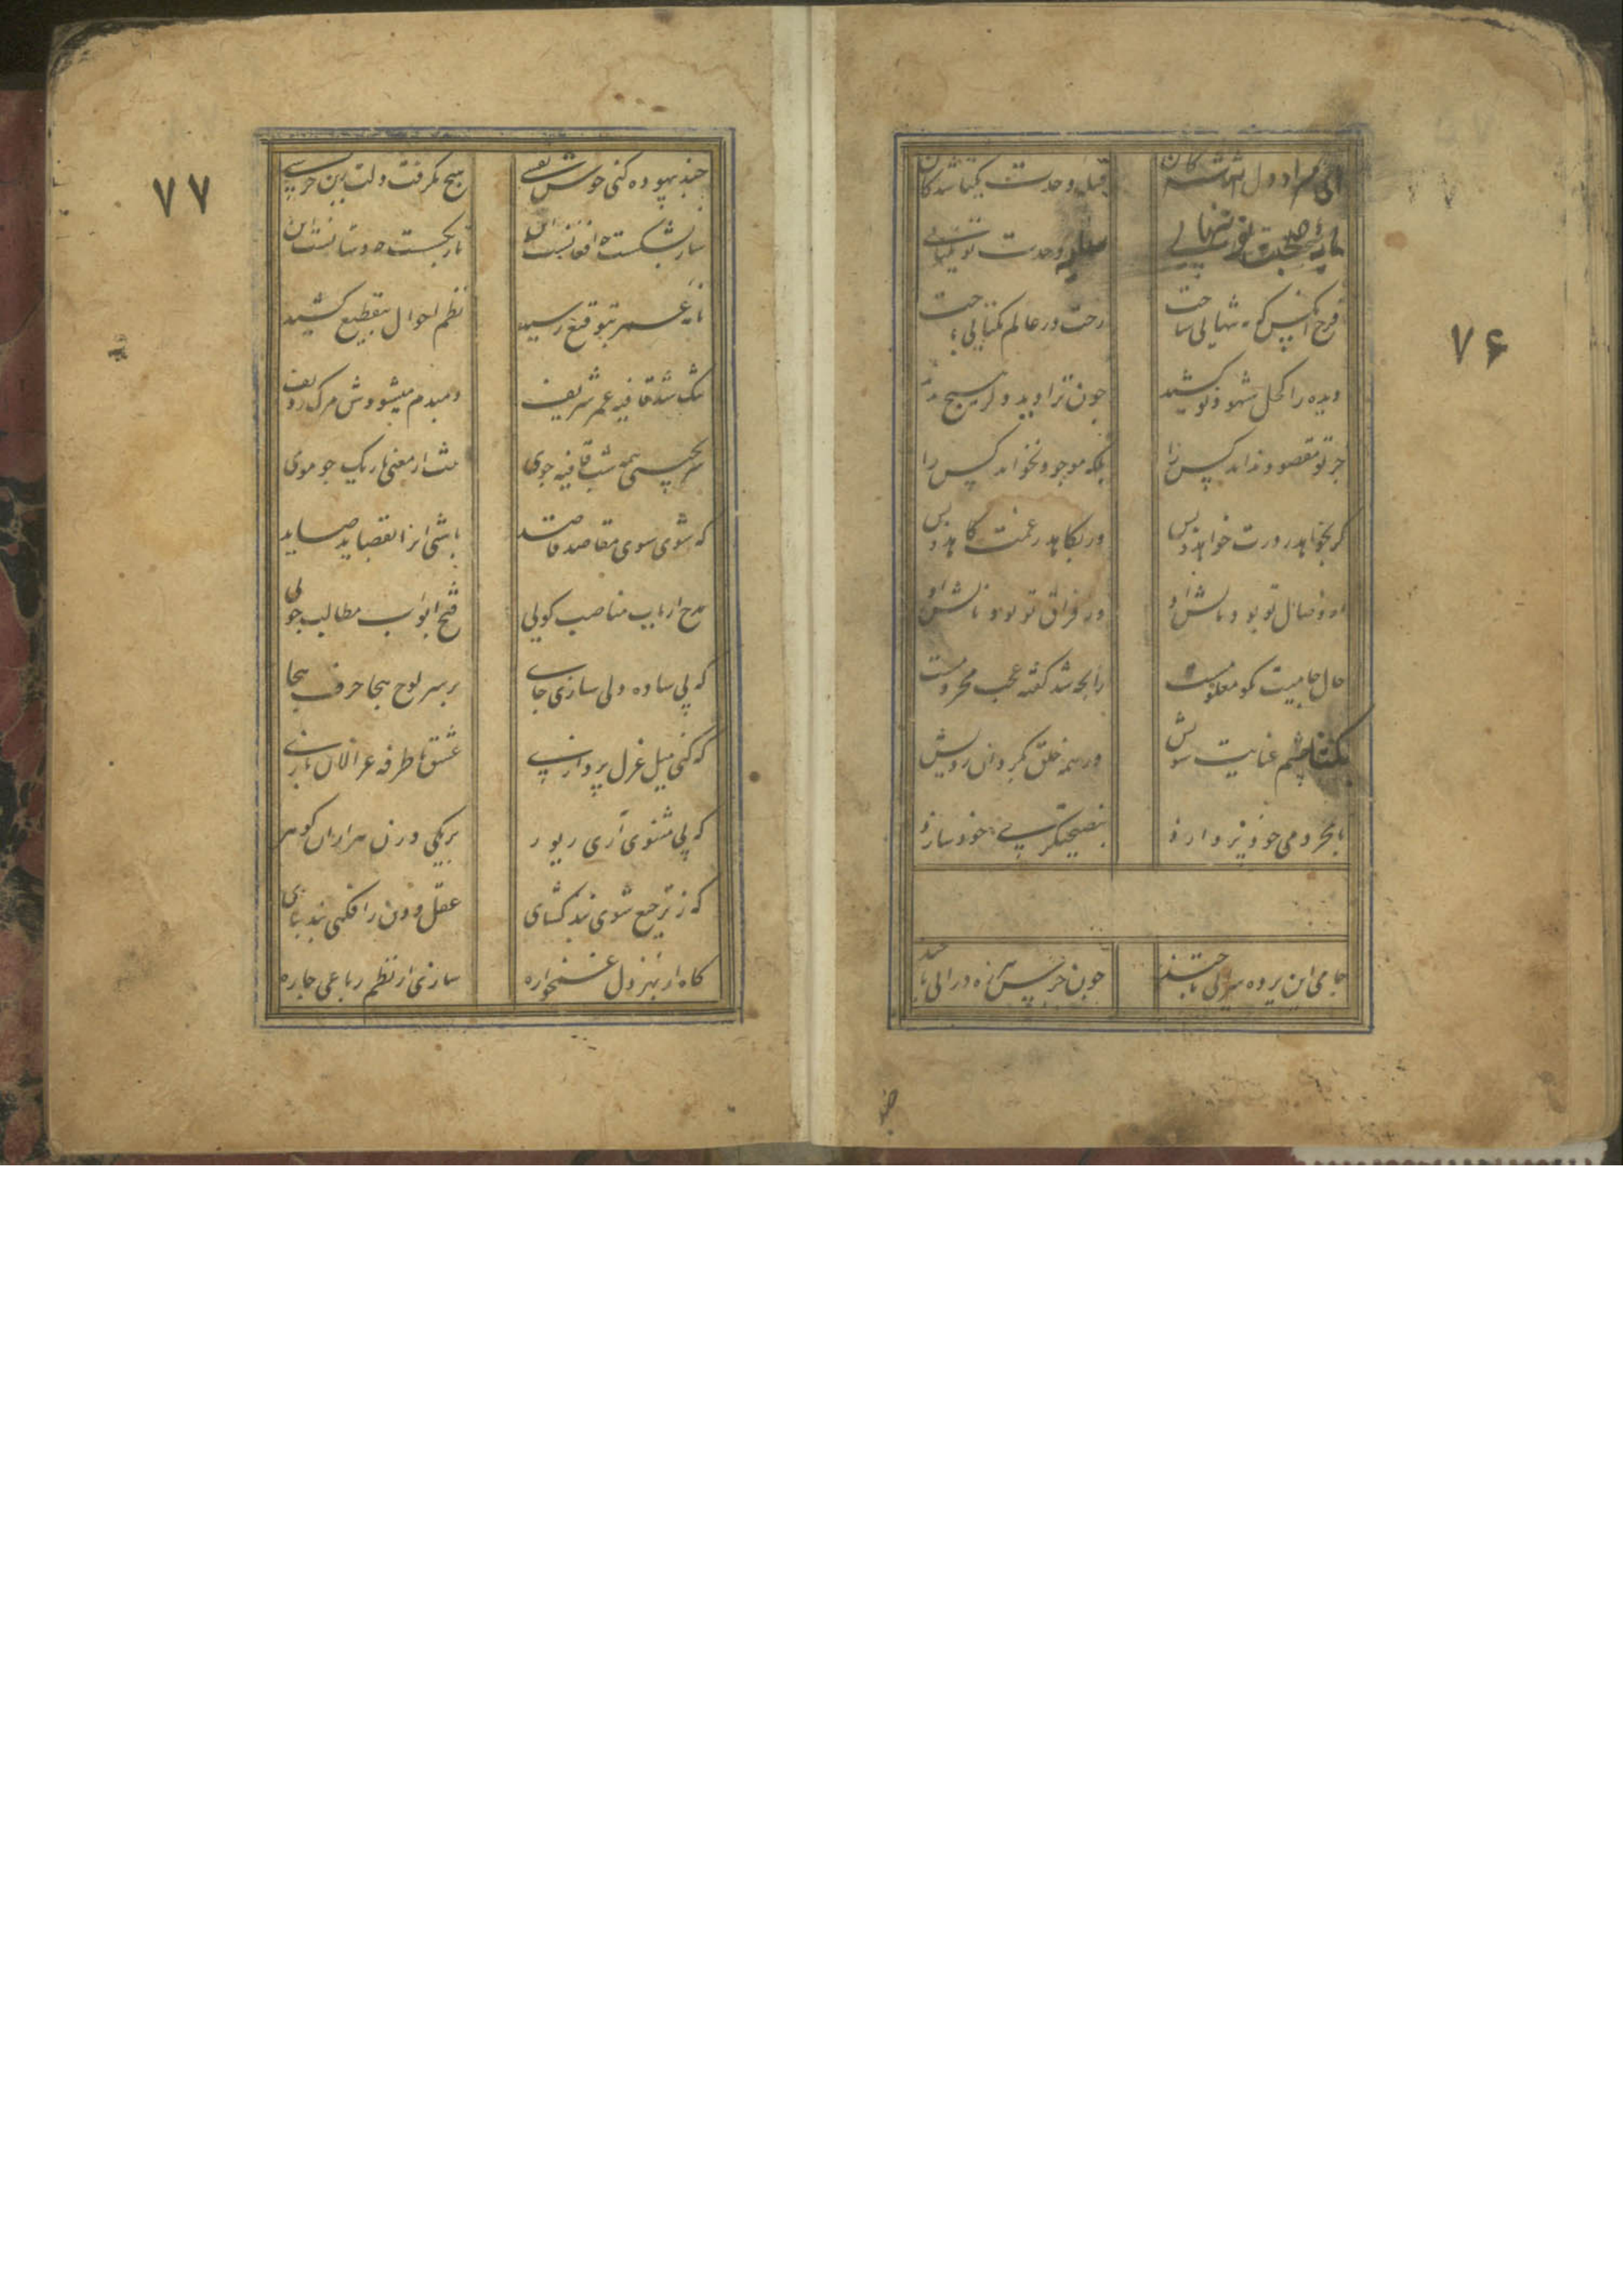 ۷۶
ای مراد دل
قبله وحدت یکتا شدکان
مایه صحبت تو تنهایی
وحدت تو یکتایی
فرخ آنکس که بتنهایی ساخت
رخت در عالم یکتایی
دیده را کحل شهود تو کشید
چون ترا دید دگر هیچ ندید
جز تو مقصود نداند کس را
بلکه موجود نخواند کس را
کر بخواهد ز درت خواهد و بس
ور بکاهد ز غمت کاهد و بس
از وصال تو بود بالش او
وز فراق تو بود نالش او
حال جامیت که معلومست
رایحه شد کفته عجب محرومست
بکشا چشم عنایت سویش
وز همه خلق بکردان رویش
با محرومی خود نیز دارد
بنصیحتکری خود سازد
جامی این پرده سرایی تا چند
چون جرس هرزه درایی تا چند
چند
۷۷
چند بیهوده کنی خوش نفسی
هیچ نکرفت دلت زین جرسی
ساز بشکست چه افغانست این
تار بکسست چه دستانست این
نامه عمر بتوقیع رسید
نظم احوال بتقطیع کشید
تنک شد قافیه عمر شریف
دمبدم میشودش مرک ردیف
سر بجیبی همه شب قافیه جوی
تنت از معنی باریک چو موی
که شوی سوی مقاصد قاصد
باشی از قصاید صاید
مدح ارباب مناصب کویی
فتح ابواب مطالب جویی
که پی ساده دلی سازی جای
بر سر لوح هجا حرف هجا
که کنی میل غزل پردازی
عشق با طرفه غزالان بازی
که پی مثنوی آری زیور
بر یکی وزن هزاران کوهر
که ز ترجیع شوی بند کشای
عقل و دین را فکنی بند بپای
کاه از بهر دل غمخواره
سازی از نظم رباعی چاره